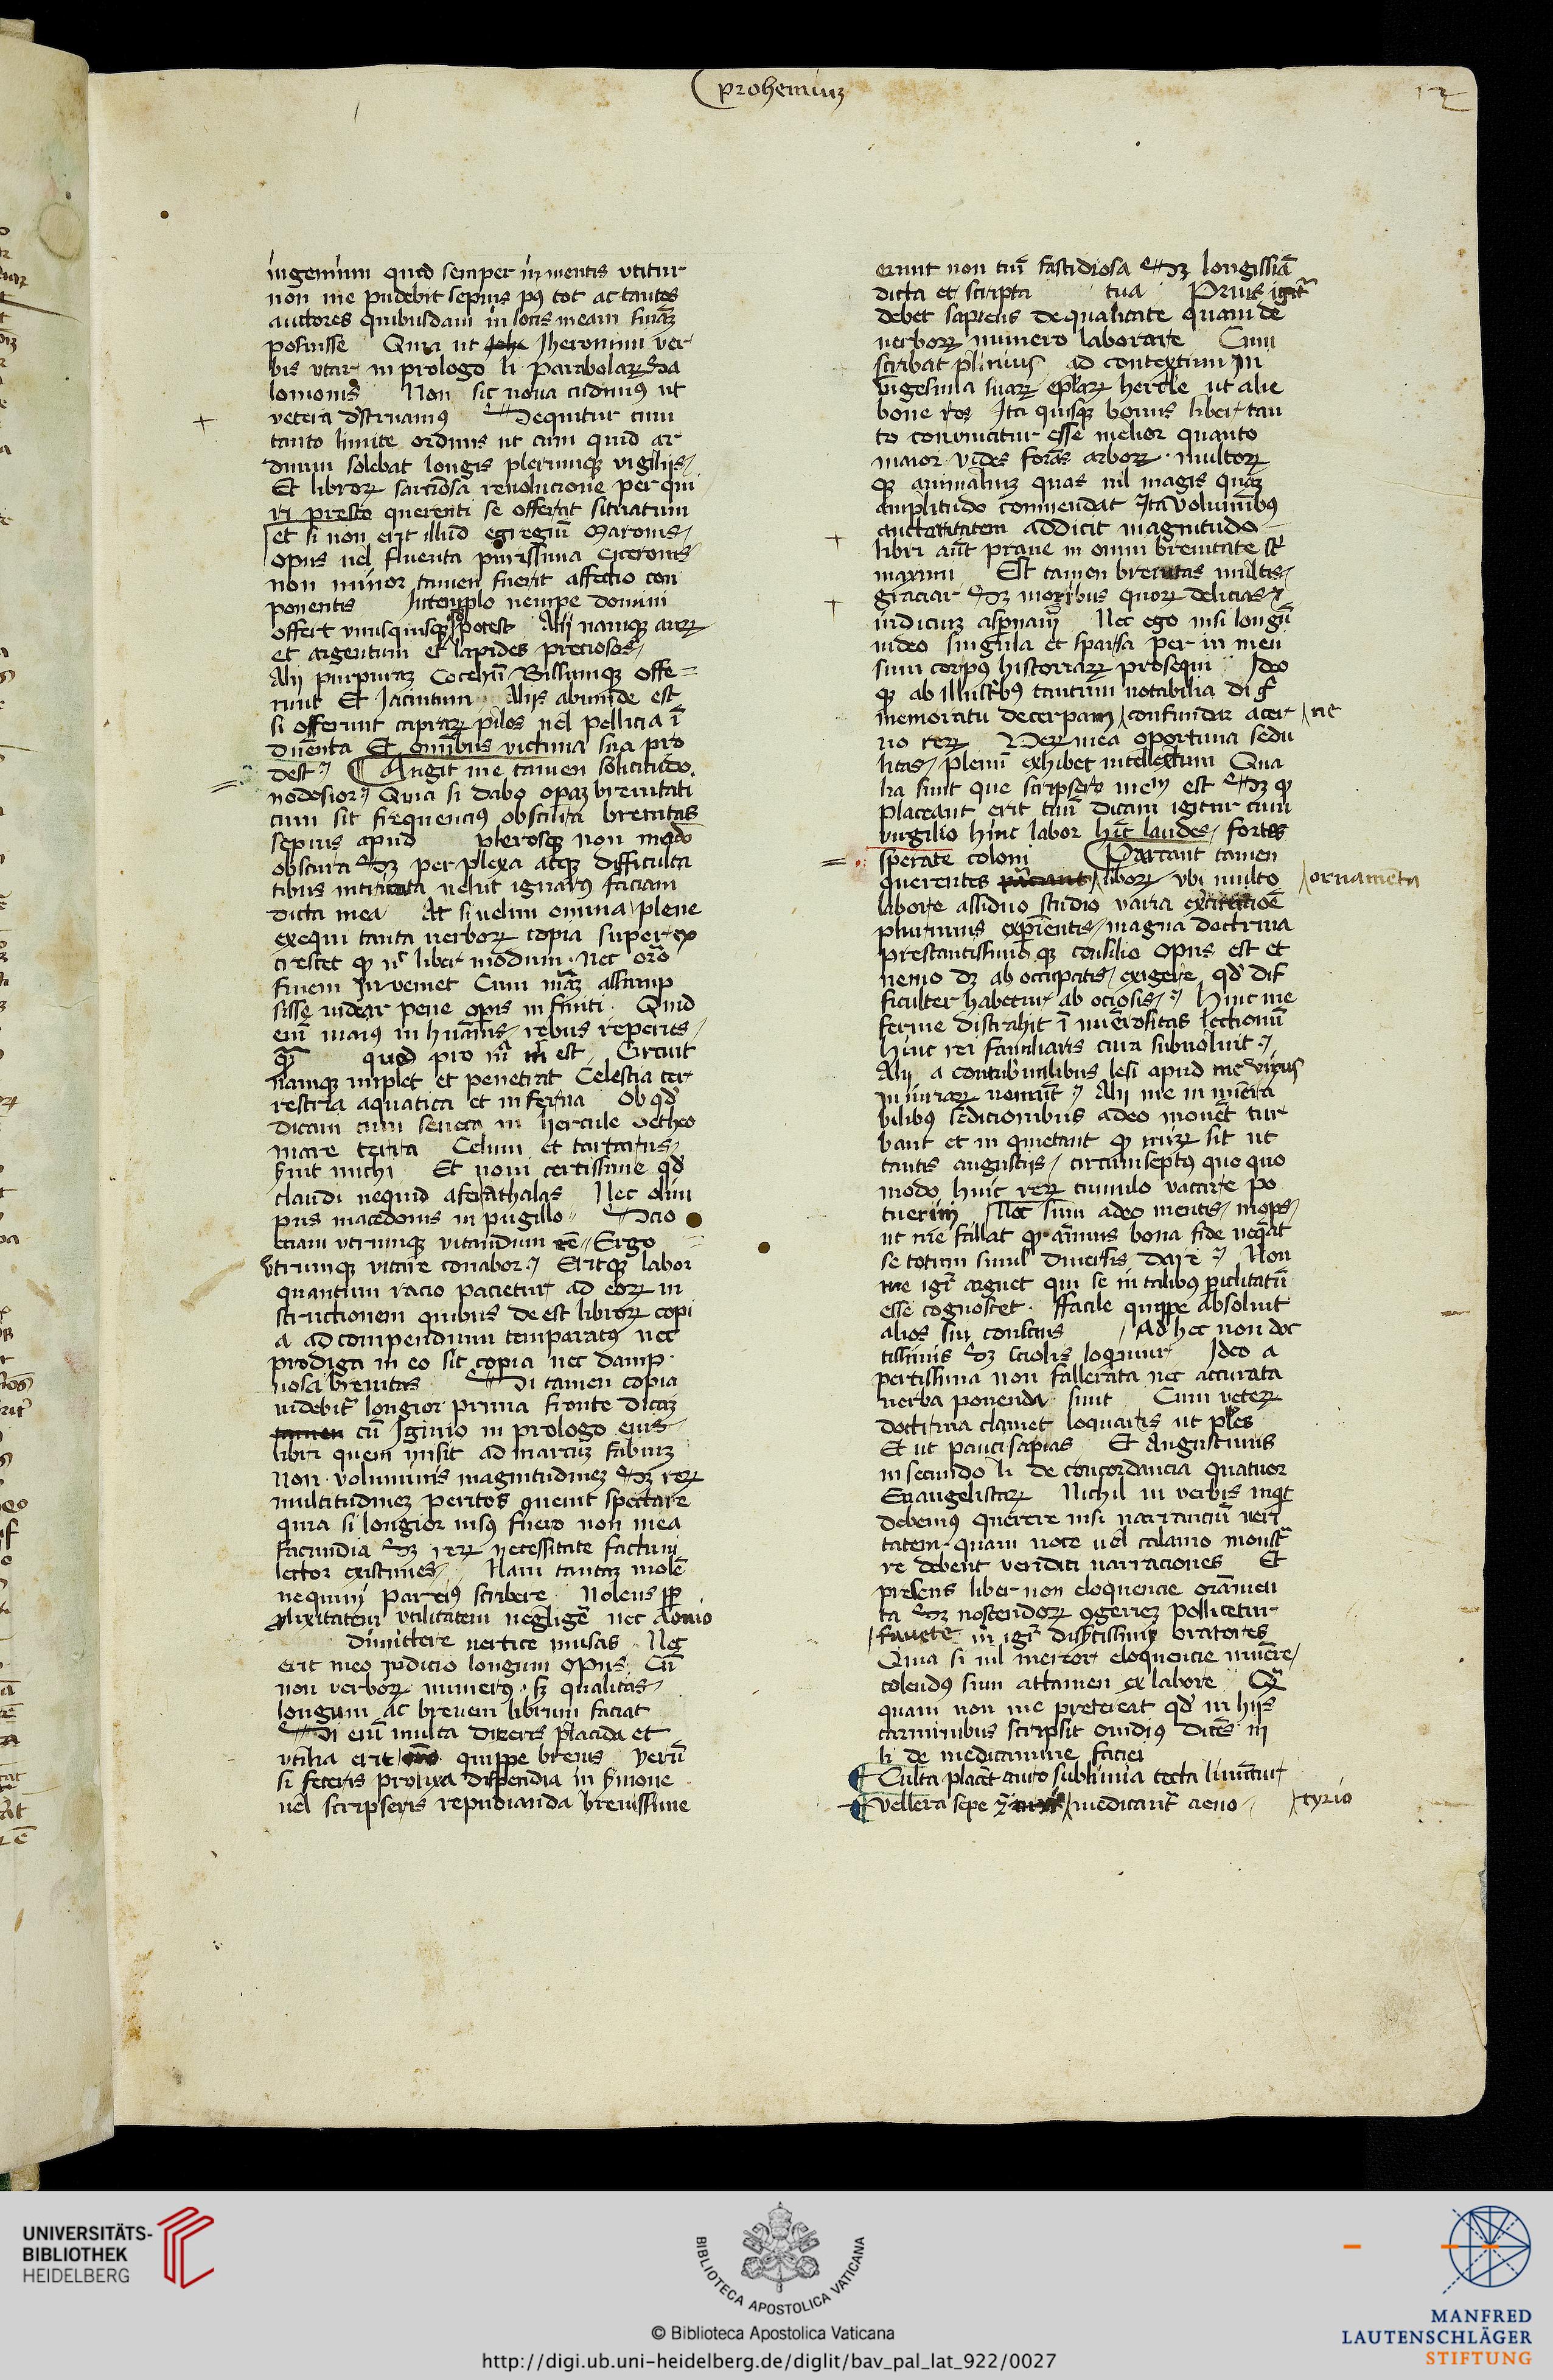 prohemiuz
12
ingenium quid semper in mentis vtitur
non me pudebit sepius pꝯ tot ac tantos
auctores quibusdam in locis meam
posuisse Quia ut Jheronimi ver
bis vtar in prologo li parabolaꝝ Sa
lomonis Non sic noua cudimꝯ ut
vetera dstruamꝯ Sequitur cum
tanto limite ordinis ut cum quid ar
duum solebat longis plerumqꝫ vigilijs
Et libroꝝ sarcinosa reuolucione perqui
ri presto querenti se offerat situatum
et si non erit illud egregiū Maronis
opus uel fluenta purissima Ciceronis
non minor tamen fuerit affectio con
ponentis Jn templo nempe domini
offert vnusquisqꝫ qꝺ potest Alij namqꝫ auꝝ
et argentum et lapides preciosos
Alij purpuraꝫ Cocchū Bissumqꝫ offe=
runt Et Jacintum Alijs abunde est
si offerunt capraꝝ pilos uel pellicia ī
duēnta Et omībus victima sua pro
dest Angit me tamen solicitudo
nodosior Quia si dabo opaꝫ breuitati
cum sit frequencius obscura breuitas
sepius apud plerosqꝫ non modo
obscura Sꝫ perplexa atqꝫ difficulta
tibus intricata uelut ignarꝯ faciam
dicta mea At si uelim omnia plene
exequi tanta uerboꝝ copia super ex
crescet liber modum nec
finem Jnveniet Cum assump
sisse uidear pene opus infiniti Quid
enī maiꝯ in huānis rebus reperies
quod pro est Circuit
namqꝫ implet et penetrat Celestia ter
restria aquatica et inferna Ob qꝺ
dicam cum seneca in hercule oetheo
mare terra Celum et tartarus
michi Et noui certissime qꝺ
claudi nequid Nec olim
pus macedonis in pugillo Scio
eciam vtrumqꝫ vitandum Ergo
vtrumqꝫ vitare conabor Eritqꝫ labor
quantum racio pacietur ad eoꝝ in
structionem quibus de est libroꝝ copi
a ad compendium temparatꝯ nec
prodiga in eo sit copia nec damp
nosa breuitas Si tamen copia
uidebit longior prima fronte dicaꝫ
tamen cū Iginio in prologo eius
libri quem misit ad marcuꝫ fabiuꝫ
Non voluminis magnitudineꝫ Sꝫ reꝝ
multitudineꝫ peritos spectare
quia si longior uisꝯ fuero non mea
facundia Sꝫ reꝝ necessitate factum
lector existimes Nam tantaꝫ molē
nequini parciꝯ scribere Nolens
prolixitatem vtilitatem negligē nec Aonio
dimittere uertice musas Nec
erit meo iudicio longum opus Cū
non verboꝝ numerꝯ sꝫ qualitas
longum Ac breuem librum faciat
Si enī multa dixeris placida et
vtilia erit quippe breuis verū
si feceris prolixa dispendia in
uel scripseris repudianda breuissime
erunt non tuī fastidiosa Sꝫ longissīa
dicta et scripta tua Prius igitr
debet sapiens de qualitate quam de
uerboꝝ numero laborare Cum
scribat plinius ad contextum In
vigesima suaꝝ eplaꝝ hercle ut alie
bone res Ita quisqꝫ bonus liber tan
to conuincitur esse melior quanto
maior vides arboꝝ multoꝝ
qꝫ animaliuꝫ quas nil magis quaꝫ
amplitudo commendat Ita voluminibꝯ
auctoritatem addicit magnitudo
libri aut praue in omni breuitate
maximi Est tamen breuitas multis
graciar Sꝫ quoꝝ delicias
iudiciuꝫ Nec ego nisi longū
uideo singula et sparsa per in meū
sum corpꝯ historiaꝝ prosequi Ideo
qꝫ ab illustribꝯ tantum notabilia
memoratu decerpam confundar acer
ut
uo reꝝ Veꝝ mea oportuna sedu
litas plenū exhibet intellectum Qua
lia sunt que scripsero meꝫ est Sꝫ
placeant erit tuū dicam igitur cum
virgilio hinc labor hīc laudes fortes
sperate coloni Parcant tamen
querentes liboꝝ vbi multo
ornamēta
labore assiduo studio varia
plurimis expientis magna doctrina
prestantissimo qꝫ consilio opus est et
nemo ab occupatis exigere qꝺ dif
ficulter habetur ab ociosis Hinc me
ferme distrahit ī nuērositas lectionū
hinc rei familiaris cura subuoluit
Alij a contribulibus lesi apud me virus
iniuriaꝝ uomūt Alij me in nuēra
bilibꝯ sedicionibus adeo mouēt tur
bant et in quietant sit ut
tantis angustijs circumseptꝯ quo quo
modo huic reꝝ cumulo vacare po
tuerim Nec sum adeo mentis inops
ut me fallat aīmus bona fide neqāt
se totum simul diuersis dare Non
me igr arguet qui se in talibꝯ piclitatū
esse cognoscet ffacile quippe absoluit
alios sui conscius Ad hec non doc
tissimis Sꝫ sciolis loquimur Ideo a
pertissima non fallerata nec accurata
uerba ponenda sunt Cum veteꝝ
doctrina clamet loquaris ut ples
Et ut pauci sapias Et Augustinus
in secundo li de concordancia quatuor
Euangelistaꝝ Nichil in verbis
debemꝯ querere nisi narranciū veri
tatem quam uoce uel calamo monstr
re debent veridici narraciones Et
presens liber non eloquencie oranmen
ta Sꝫ noscendoꝝ ꝯgerieꝫ pollicetur
fauete m igr oratores
Quia si nil mereor eloquencie munēre
colendꝯ sum attamen ex labore Q
quam non me pretereat qꝺ in hijs
carminibus scripsit ouidiꝯ dicēs in
li de medicamine faciei
Culta placēt auro sublimia tecta linūtur
vellera sepe medicant aeno
tyrio
UNIVERSITÄTS-
BIBLIOTHEK
HEIDELBERG
BIBLIOTECA APOSTOLICA VATICANA
© Biblioteca Apostolica Vaticana
http://digi.ub.uni-heidelberg.de/diglit/bav_pal_lat_922/0027
MANFRED
LAUTENSCHLÄGER
STIFTUNG